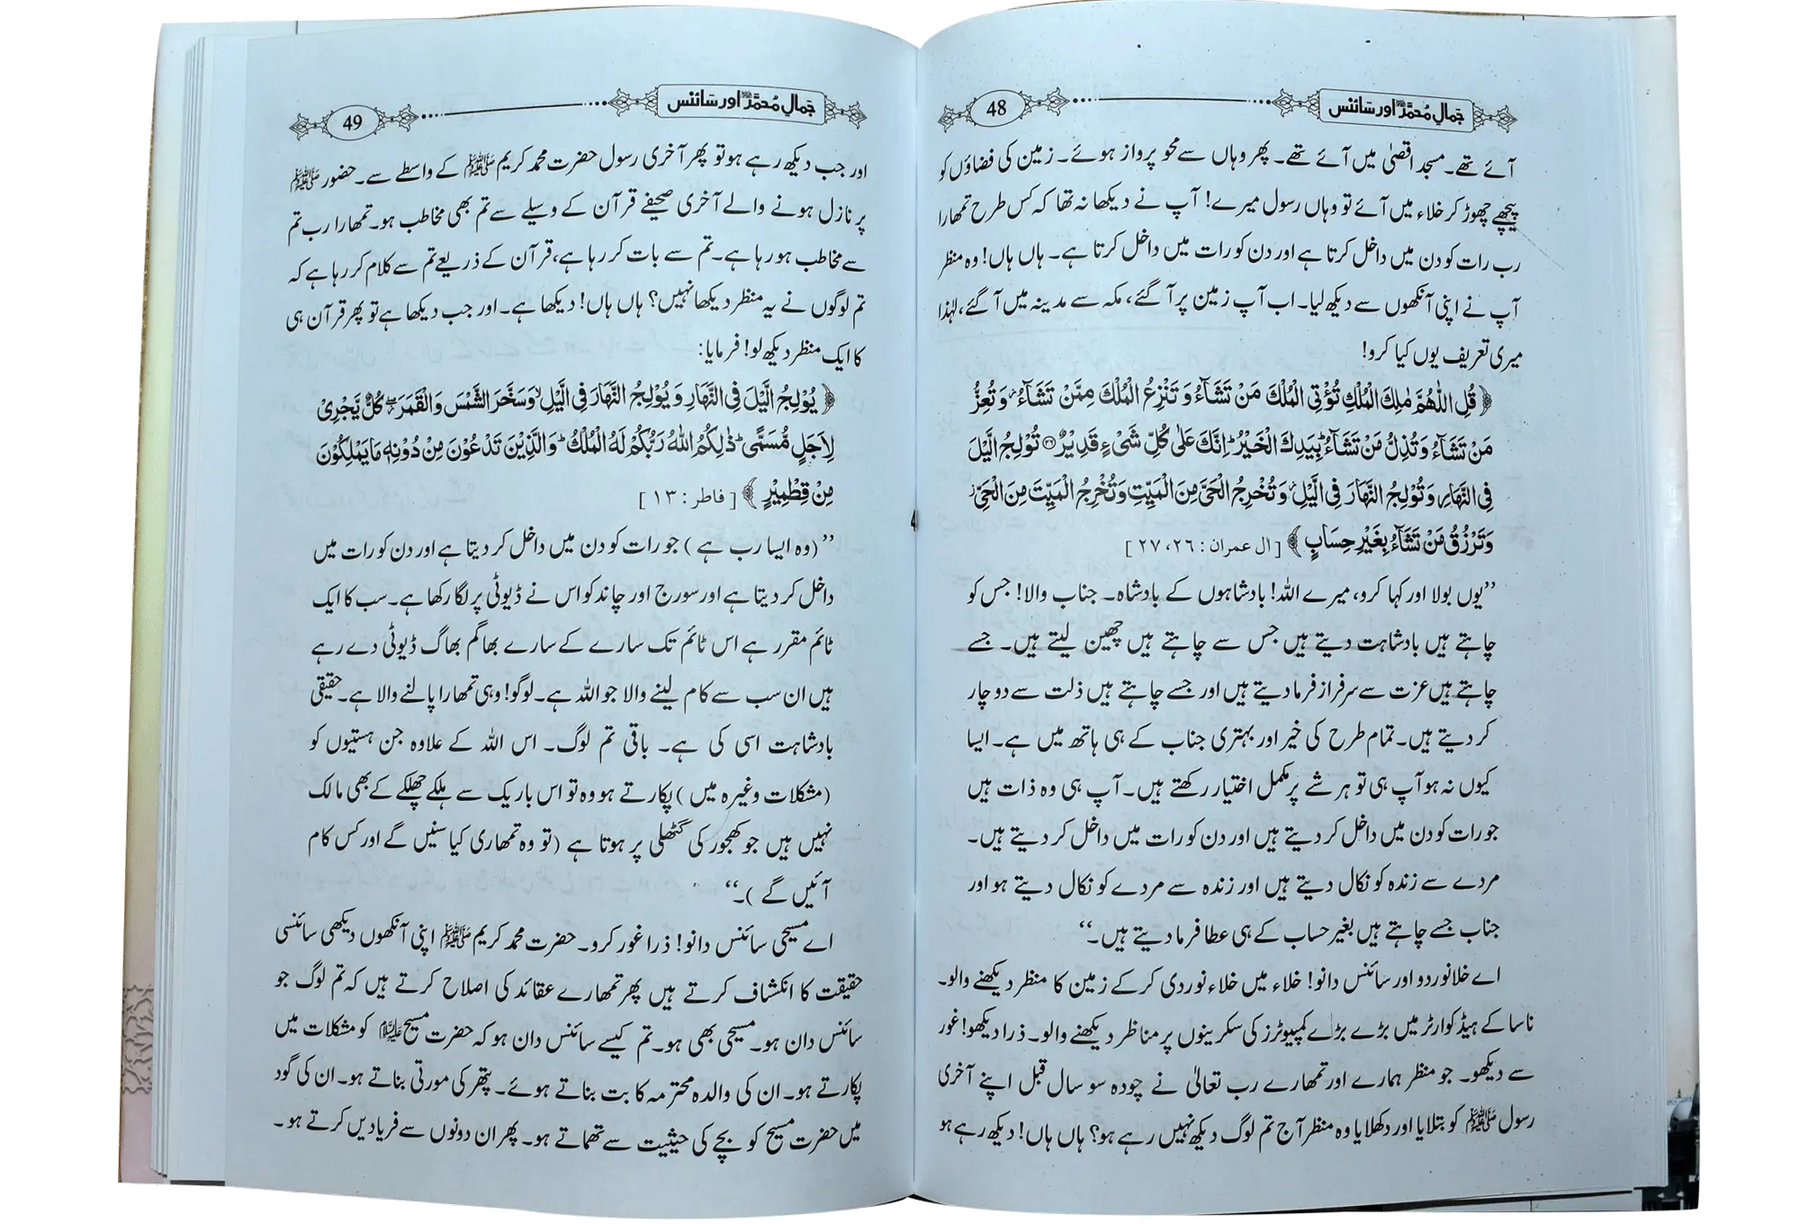 جمالِ مُحمّد ﷺ اور سائنس
48
آئے تھے۔ مسجد اقصیٰ میں آئے تھے۔ پھر وہاں سے محو پرواز ہوئے۔ زمین کی فضاؤں کو
پیچھے چھوڑ کر خلاء میں آئے تو وہاں رسول میرے! آپ نے دیکھا نہ تھا کہ کس طرح تمھارا
رب رات کو دن میں داخل کرتا ہے اور دن کو رات میں داخل کرتا ہے۔ ہاں ہاں! وہ منظر
آپ نے اپنی آنکھوں سے دیکھ لیا۔ اب آپ زمین پر آ گئے، مکہ سے مدینہ میں آ گئے، لہٰذا
میری تعریف یوں کیا کرو!
﴿ قُلِ اللّٰهُمَّ مٰلِكَ الْمُلْكِ تُؤْتِي الْمُلْكَ مَنْ تَشَآءُ وَ تَنْزِعُ الْمُلْكَ مِمَّنْ تَشَآءُ ۫ وَ تُعِزُّ
مَنْ تَشَآءُ وَ تُذِلُّ مَنْ تَشَآءُ ؕ بِيَدِكَ الْخَيْرُ ؕ اِنَّكَ عَلٰى كُلِّ شَيْءٍ قَدِيْرٌ ۝۲۶ تُوْلِجُ الَّيْلَ
فِي النَّهَارِ وَ تُوْلِجُ النَّهَارَ فِي الَّيْلِ ۫ وَ تُخْرِجُ الْحَيَّ مِنَ الْمَيِّتِ وَ تُخْرِجُ الْمَيِّتَ مِنَ الْحَيِّ ۫
وَ تَرْزُقُ مَنْ تَشَآءُ بِغَيْرِ حِسَابٍ ﴾ [ ال عمران : ۲۶، ۲۷ ]
’’یوں بولا اور کہا کرو، میرے اللہ! بادشاہوں کے بادشاہ۔ جناب والا! جس کو
چاہتے ہیں بادشاہت دیتے ہیں جس سے چاہتے ہیں چھین لیتے ہیں۔ جسے
چاہتے ہیں عزت سے سرفراز فرما دیتے ہیں اور جسے چاہتے ہیں ذلت سے دوچار
کر دیتے ہیں۔ تمام طرح کی خیر اور بہتری جناب کے ہی ہاتھ میں ہے۔ ایسا
کیوں نہ ہو آپ ہی تو ہر شے پر مکمل اختیار رکھتے ہیں۔ آپ ہی وہ ذات ہیں
جو رات کو دن میں داخل کر دیتے ہیں اور دن کو رات میں داخل کر دیتے ہیں۔
مردے سے زندہ کو نکال دیتے ہیں اور زندہ سے مردے کو نکال دیتے ہو اور
جناب جسے چاہتے ہیں بغیر حساب کے ہی عطا فرما دیتے ہیں۔‘‘
اے خلا نوردو اور سائنس دانو! خلاء میں خلاء نوردی کر کے زمین کا منظر دیکھنے والو۔
ناسا کے ہیڈ کوارٹر میں بڑے بڑے کمپیوٹرز کی سکرینوں پر مناظر دیکھنے والو۔ ذرا دیکھو! غور
سے دیکھو۔ جو منظر ہمارے اور تمھارے رب تعالیٰ نے چودہ سو سال قبل اپنے آخری
رسول ﷺ کو بتلایا اور دکھلایا وہ منظر آج تم لوگ دیکھ نہیں رہے ہو؟ ہاں ہاں! دیکھ رہے ہو
جمالِ مُحمّد ﷺ اور سائنس
49
اور جب دیکھ رہے ہو تو پھر آخری رسول حضرت محمد کریم ﷺ کے واسطے سے۔ حضور ﷺ
پر نازل ہونے والے آخری صحیفے قرآن کے وسیلے سے تم بھی مخاطب ہو۔ تمھارا رب تم
سے مخاطب ہو رہا ہے۔ تم سے بات کر رہا ہے، قرآن کے ذریعے تم سے کلام کر رہا ہے کہ
تم لوگوں نے یہ منظر دیکھا نہیں؟ ہاں ہاں! دیکھا ہے۔ اور جب دیکھا ہے تو پھر قرآن ہی
کا ایک منظر دیکھ لو! فرمایا:
﴿ يُوْلِجُ الَّيْلَ فِي النَّهَارِ وَ يُوْلِجُ النَّهَارَ فِي الَّيْلِ ۙ وَ سَخَّرَ الشَّمْسَ وَ الْقَمَرَ ۖ كُلٌّ يَّجْرِيْ
لِاَجَلٍ مُّسَمًّى ؕ ذٰلِكُمُ اللّٰهُ رَبُّكُمْ لَهُ الْمُلْكُ ؕ وَ الَّذِيْنَ تَدْعُوْنَ مِنْ دُوْنِهٖ مَا يَمْلِكُوْنَ
مِنْ قِطْمِيْرٍ ﴾ [ فاطر : ۱۳ ]
’’(وہ ایسا رب ہے ) جو رات کو دن میں داخل کر دیتا ہے اور دن کو رات میں
داخل کر دیتا ہے اور سورج اور چاند کو اس نے ڈیوٹی پر لگا رکھا ہے۔ سب کا ایک
ٹائم مقرر ہے اس ٹائم تک سارے کے سارے بھاگم بھاگ ڈیوٹی دے رہے
ہیں ان سب سے کام لینے والا جو اللہ ہے۔ لوگو! وہی تمھارا پالنے والا ہے۔ حقیقی
بادشاہت اسی کی ہے۔ باقی تم لوگ۔ اس اللہ کے علاوہ جن ہستیوں کو
(مشکلات وغیرہ میں ) پکارتے ہو وہ تو اس باریک سے ہلکے چھلکے کے بھی مالک
نہیں ہیں جو کھجور کی گٹھلی پر ہوتا ہے (تو وہ تمھاری کیا سنیں گے اور کس کام
آئیں گے )۔‘‘
اے مسیحی سائنس دانو! ذرا غور کرو۔ حضرت محمد کریم ﷺ اپنی آنکھوں دیکھی سائنسی
حقیقت کا انکشاف کرتے ہیں پھر تمھارے عقائد کی اصلاح کرتے ہیں کہ تم لوگ جو
سائنس دان ہو۔ مسیحی بھی ہو۔ تم کیسے سائنس دان ہو کہ حضرت مسیح علیہ السلام کو مشکلات میں
پکارتے ہو۔ ان کی والدہ محترمہ کا بت بناتے ہوئے۔ پتھر کی مورتی بناتے ہو۔ ان کی گود
میں حضرت مسیح کو بچے کی حیثیت سے تھماتے ہو۔ پھر ان دونوں سے فریادیں کرتے ہو۔